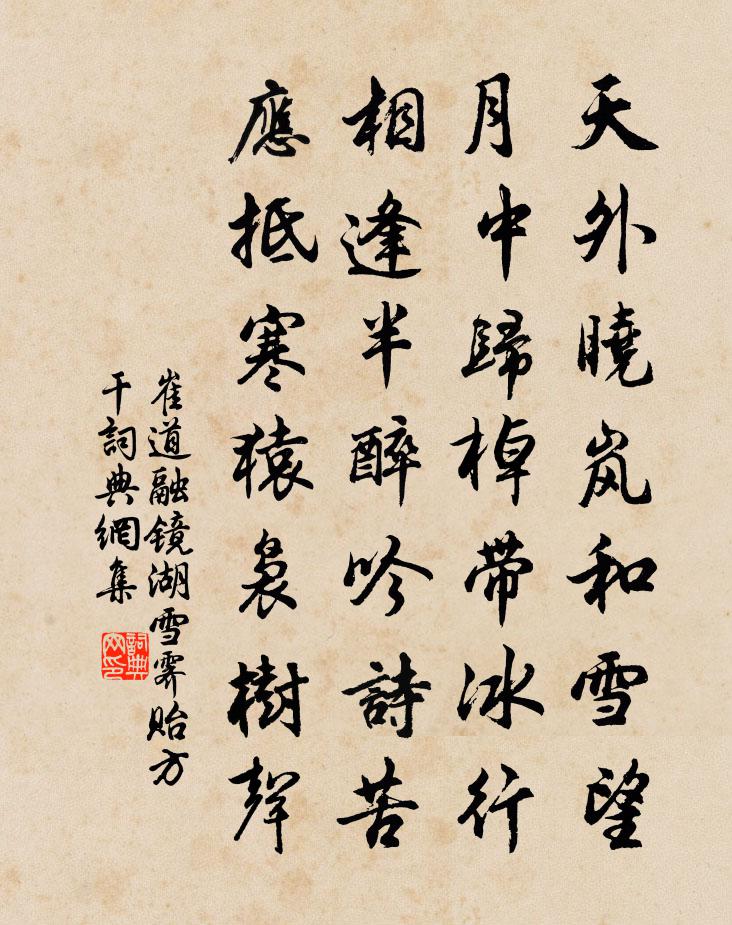 天外曉岚和雪望
月中歸棹帶冰行
相逢半醉吟詩苦
應抵寒猿裊樹聲
崔道融鏡湖雪霽貽方
干詞典網集
詞典
网印